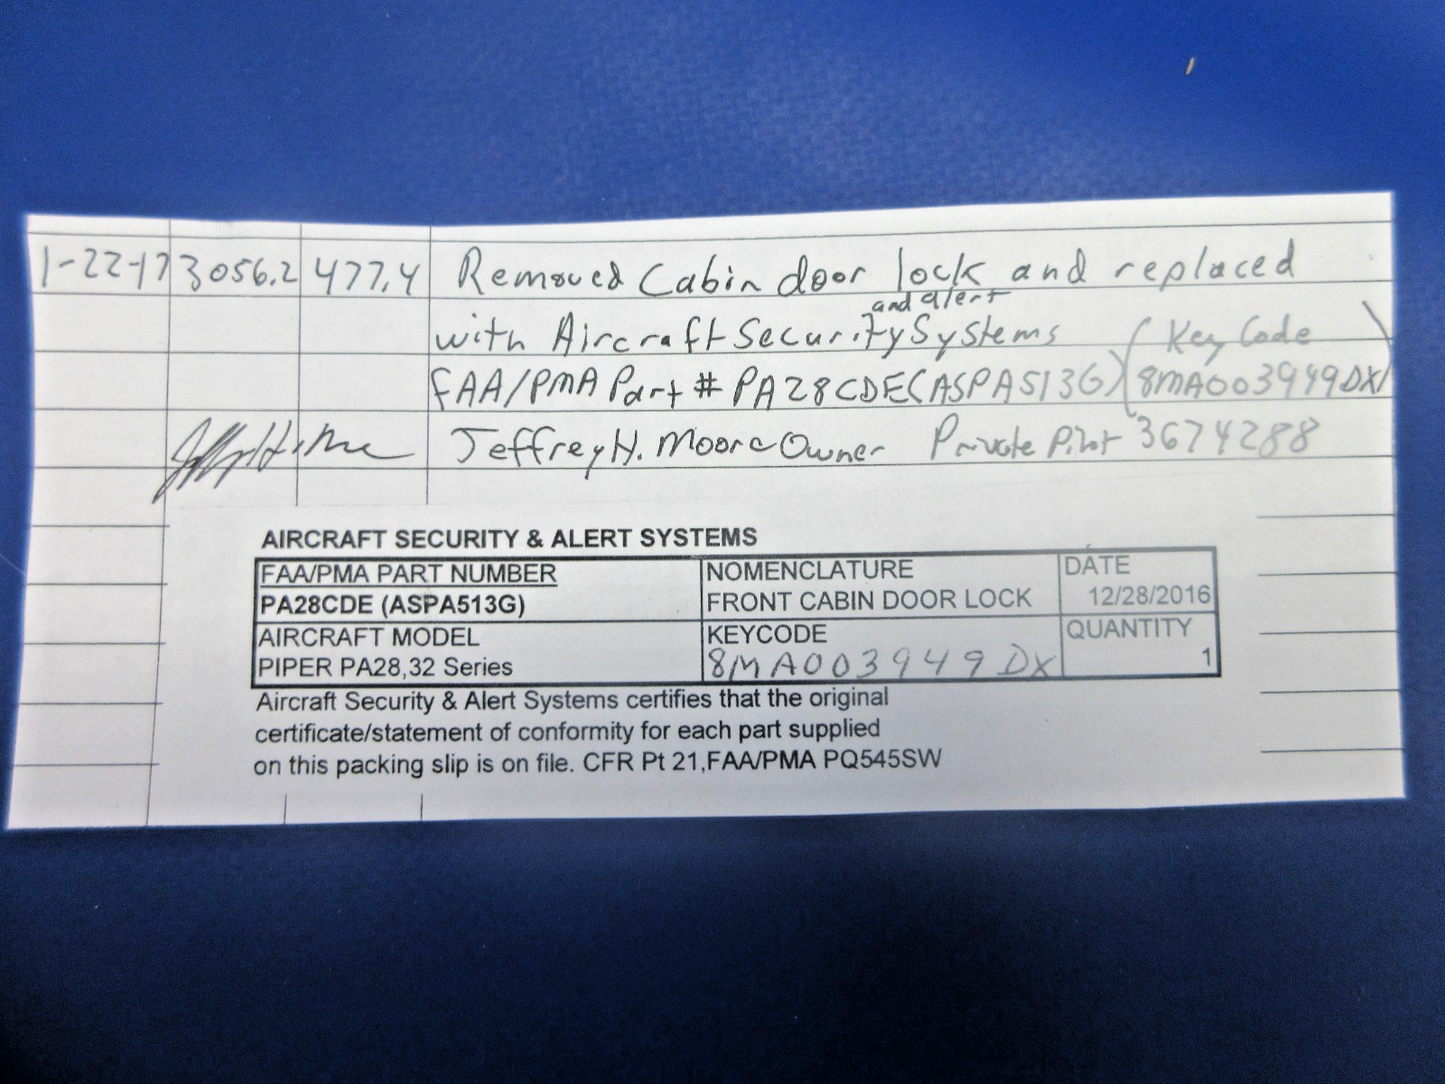 1-22-17 3056.2 477.4 Removed Cabin door lock and replaced
and alert
with Aircraft Security Systems (Key Code
FAA/PMA Part # PA28CDE(ASPA513G) 8MA003949DX)
Jeffrey H. Moore Owner Private Pilot 3674288
AIRCRAFT SECURITY & ALERT SYSTEMS
FAA/PMA PART NUMBER NOMENCLATURE DATE
PA28CDE (ASPA513G) FRONT CABIN DOOR LOCK 12/28/2016
AIRCRAFT MODEL KEYCODE QUANTITY
PIPER PA28,32 Series 8MA003949DX 1
Aircraft Security & Alert Systems certifies that the original
certificate/statement of conformity for each part supplied
on this packing slip is on file. CFR Pt 21,FAA/PMA PQ545SW